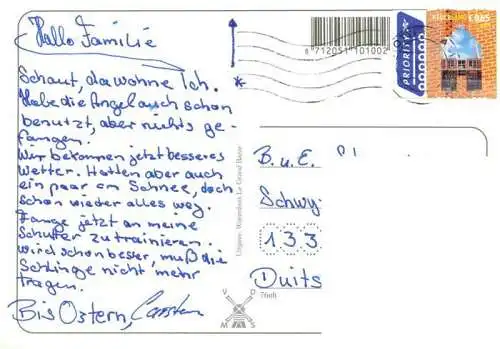 Hallo Familie
Schaut, da wohne Ich.
Habe die Angel auch schon
benutzt, aber nichts ge-
fangen.
Wir bekommen jetzt besseres
Wetter. Hatten aber auch
ein paar cm Schnee, doch
schon wieder alles weg.
Fange jetzt an meine
Schulter zu trainieren.
wird schon besser, muß die
Schlinge nicht mehr
tragen.
Bis Ostern, Carsten
8 712051 101002
PRIORITY
NEDERLAND €0,65
B. u. E.
Schwy
133
Duits
V O
M S